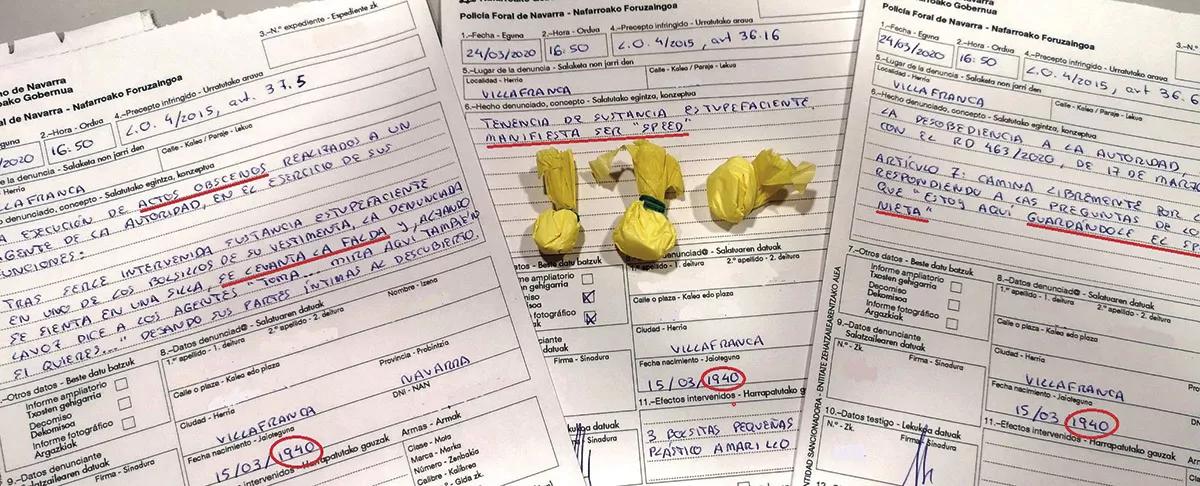 3.-N.º expediente - Expediente zk
ho de Navarra
oako Gobernua
ral de Navarra - Nafarroako Foruzaingoa
2.-Hora - Ordua
4.-Precepto infringido - Urratutako araua
/2020
16:50
L.O. 4/2015, art. 37.5
de la denuncia - Salaketa non jarri den
Calle - Kalea / Paraje - Lekua
LLAFRANCA
denunciado, concepto - Salatutako egintza, kontzeptua
A EJECUCIÓN DE ACTOS OBSCENOS REALIZADOS A UN
AGENTE DE LA AUTORIDAD, EN EL EJERCICIO DE SUS
FUNCIONES:
TRAS SERLE INTERVENIDA SUSTANCIA ESTUPEFACIENTE
EN UNO DE LOS BOLSILLOS DE SU VESTIMENTA, LA DENUNCIADA
SE SIENTA EN UNA SILLA, SE LEVANTA LA FALDA Y, ALZANDO
LA VOZ DICE A LOS AGENTES "TOMA... MIRA AQUÍ TAMBIÉN
SI QUIERES..." DEJANDO SUS PARTES ÍNTIMAS AL DESCUBIERTO.
-Otros datos - Beste datu batzuk
Informe ampliatorio
Txosten gehigarria
Decomiso
Dekomisoa
Informe fotográfico
Argazkiak
8.-Datos denunciad@ - Salatuaren datuak
1.º apellido - 1. deitura
2.º apellido - 2. deitura
Nombre - Izena
Calle o plaza - Kalea edo plaza
Ciudad - Herria
Provincia - Probintzia
VILLAFRANCA
NAVARRA
Fecha nacimiento - Jaioteguna
DNI - NAN
15/03/1940
9.-Datos denunciante
Salatzailearen datuak
Firma - Sinadura
Harrapatutako gauzak
Armas - Armak
Clase - Mota
Marca - Marka
Número - Zenbakia
Calibre - Kalibrea
N.º Guía - Gida zk.
Policía Foral de Navarra - Nafarroako Foruzaingoa
1.-Fecha - Eguna
2.-Hora - Ordua
4.-Precepto infringido - Urratutako araua
24/03/2020
16:50
L.O. 4/2015, art 36.16
5.-Lugar de la denuncia - Salaketa non jarri den
Localidad - Herria
Calle - Kalea / Paraje - Lekua
VILLAFRANCA
6.-Hecho denunciado, concepto - Salatutako egintza, kontzeptua
TENENCIA DE SUSTANCIA ESTUPEFACIENTE.
MANIFIESTA SER "SPEED"
datos - Beste datu batzuk
me ampliatorio
ten gehigarria
miso
misoa
fotográfico
kiak
denunciad@ - Salatuaren datuak
- 1. deitura
2.º apellido - 2. deitura
Calle o plaza - Kalea edo plaza
Ciudad - Herria
VILLAFRANCA
Fecha nacimiento - Jaioteguna
15/03/1940
nunciante
en datuak
Firma - Sinadura
11.-Efectos intervenidos - Harrapatutako gauzak
3 BOLSITAS PEQUEÑAS
PLÁSTICO AMARILLO
Lekukoa datuak
Firma - Sinadura
Policía Foral de Navarra - Nafarroako Foruzaingoa
3.-N.º
1.-Fecha - Eguna
2.-Hora - Ordua
4.-Precepto infringido - Urratutako araua
24/03/2020
16:50
L.O. 4/2015, art 36.6
5.-Lugar de la denuncia - Salaketa non jarri den
Localidad - Herria
Calle - Kalea / Paraje - Lekua
VILLAFRANCA
6.-Hecho denunciado, concepto - Salatutako egintza, kontzeptua
LA DESOBEDIENCIA A LA AUTORIDAD,
CON EL RD 463/2020, DE 17 DE MARZ
ARTÍCULO 7: CAMINA LIBREMENTE POR
RESPONDIENDO A LAS PREGUNTAS DE LO
QUE "ESTOY AQUÍ GUARDÁNDOLE EL SP
NIETA"
7.-Otros datos - Beste datu batzuk
Informe ampliatorio
Txosten gehigarria
Decomiso
Dekomisoa
Informe fotográfico
Argazkiak
8.-Datos denunciad@ - Salatuaren datuak
1.º apellido - 1. deitura
2.º apellido - 2. deitura
Calle o plaza - Kalea edo plaza
Ciudad - Herria
VILLAFRANCA
Fecha nacimiento - Jaioteguna
15/03/1940
9.-Datos denunciante
Salatzailearen datuak
N.º - Zk.
Firma - Sinadura
11.-Efectos intervenidos - Harrapatutako gauzak
10.-Datos testigo - Lekukoa datuak
N.º - Zk.
Firma - Sinadura
ENTIDAD SANCIONADORA - ENTITATE ZEHATZAILEARENTZAKO ALEA